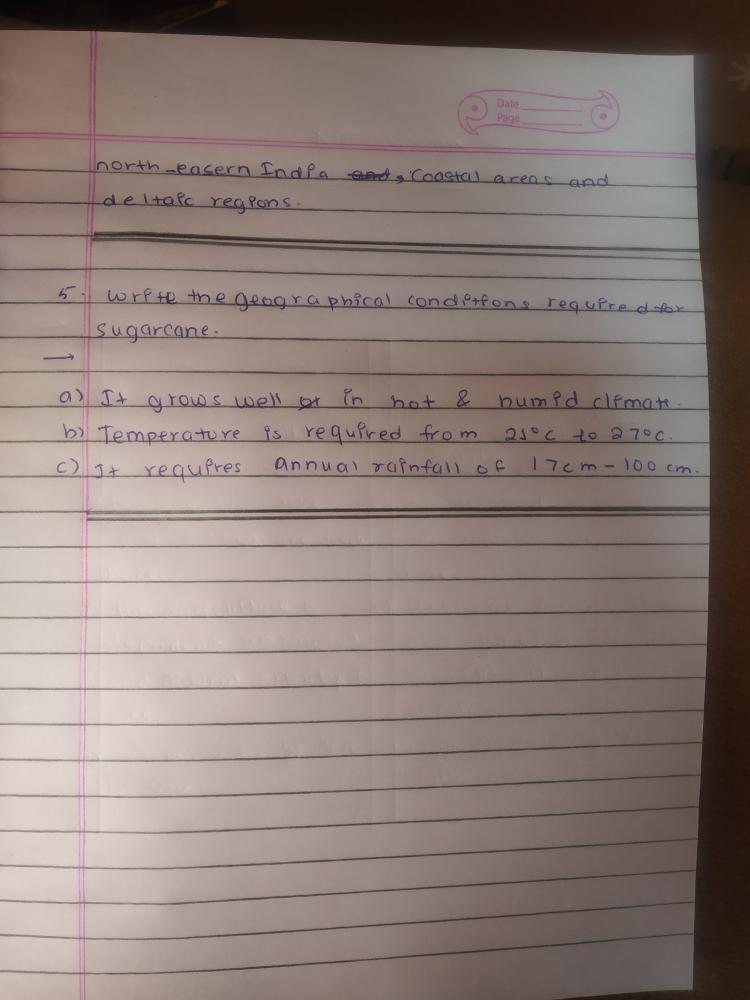 Date
Page
north-easern India and, Coastal areas and
deltaic regions.
5. Write the geographical conditions required for
sugarcane.
→
a) It grows well in hot & humid climate.
b) Temperature is required from 21°c to 27°c.
c) It requires annual rainfall of 17cm - 100 cm.